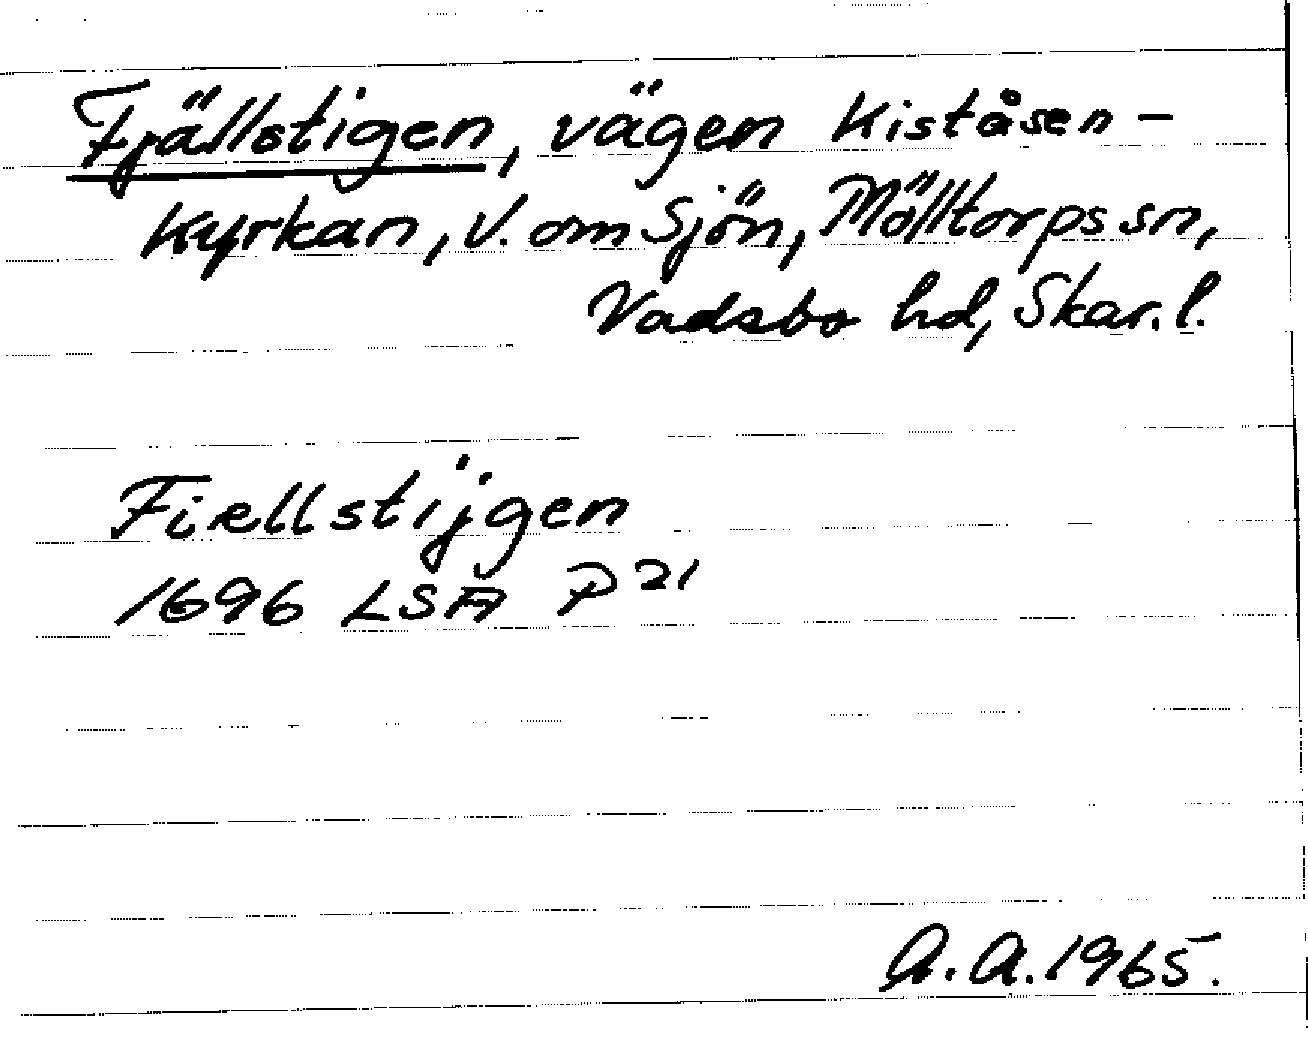 Fjällstigen, vägen Kiståsen –
Kyrkan, V. om Sjön, Mölltorps sn,
Vadsbo hd, Skar. l.
Fiellstijgen
1696 LSA P 21
A. A. 1965.